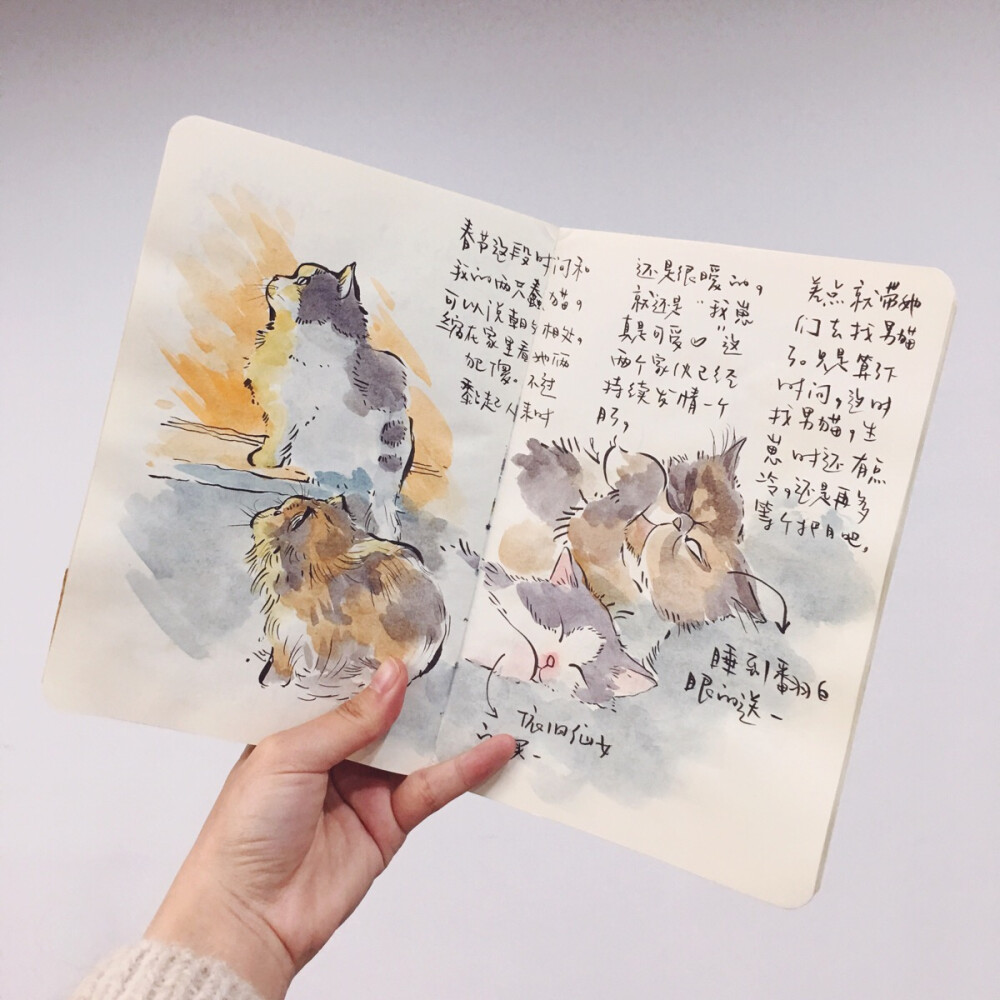 春节这段时间和
我的两只蠢猫，
可以说朝夕相处，
缩在家里看她俩
犯傻。不过
黏起人来时
还是很暖的，
就还是“我崽
真是可爱♡”这
两个家伙已经
持续发情一个
月，
差点就带她
们去找男猫
了。只是算下
时间，这时
找男猫，生
崽时还有点
冷，还是再多
等个把月吧，
睡到翻白
眼的送一
依旧仙女
的买一